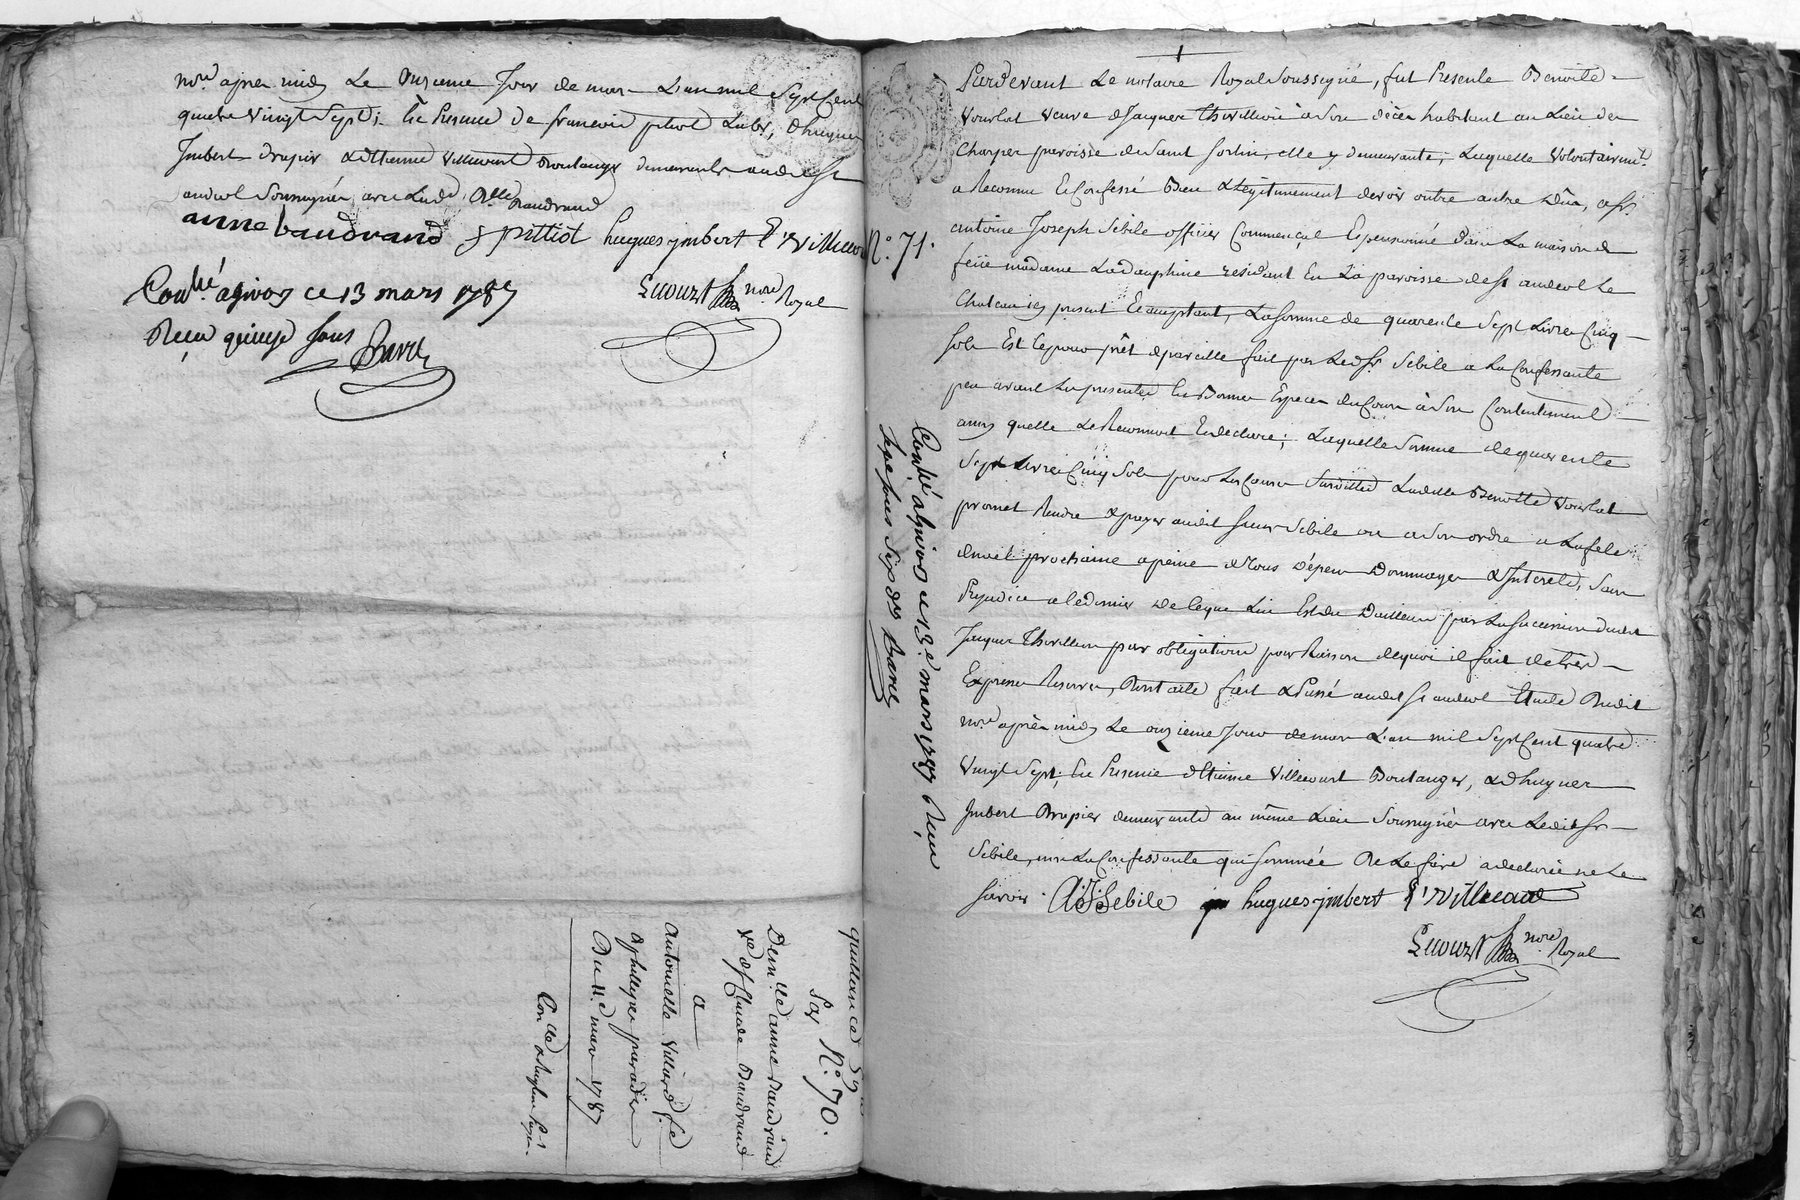 nore après midy Le Onzieme Jour de mars L'an mil Sept Cent
quatre Vingt Sept; En Presence de francois pitiot Labr, d'hugues
Imbert drapier & d'Etienne Villecourt Boulanger demeurants audit St
andeol Soussignés avec Lade Dlle Baudrand
anne baudrand f pittiot hugues jmbert E Villecourt
Conlé a givors ce 13 mars 1787
Recu quinze sous
Lecourt nore Royal
quittance
Par N° 70.
Demlle anne Baudrand
ve de Sr Claude Baudrand
a
Antoinette Villard fe
a philippe paradis
Du 11e mars 1787
N° 71.
Conlé a givors ce 13e mars 1787 Recu
Pardevant Le notaire Royal Soussigné, fut Presente Benoite
Vourlat veuve de Jacques Thivillion à Son décès habitant au Lieu de
Charpes paroisse de Saint Sorlin, elle y demeurante; Laquelle Volontairemt
a Reconnu & Confessé Bien & Légitimement devoir outre autre Dû, a Sr
antoine Joseph Sebile officier Commençal & pensionné dans La maison de
feüe madame La dauphine résidant En La paroisse de St andeol Le
Chateau icy present & acceptant, La Somme de quarente Sept Livres Cinq
Sols & C'est pour prêt de pareille fait par Ledt Sr Sebile a La Confessante
peu avant Les presentes En Bonnes Especes du Cours à Son Contentement
ainsy quelle Le Reconnoit & declare; Laquelle Somme de quarente
Sept Livres Cinq Sols pour Les Causes Susdittes Laditte Benoitte Vourlat
promet Rendre & payer audit Sieur Sebile ou a Son ordre a La fete
de noël prochaine a peine de Tous Dépens Dommages & Interets, Sans
Prejudice a ce dernier de ce que Lui Est du D'ailleurs par La Succession dudit
Jacques Thivillion par obligation pour Raison de quoi il fait de très
Expresses Reserves, Dont acte fait & Passé audit St andeol Etude Dudit
nore après midy Le onzieme Jour de mars L'an mil Sept Cent quatre
Vingt Sept; En Presence d'Etienne Villecourt Boulanger, & d'hugues
Imbert Drapier demeurants au même Lieu Soussignés avec Ledit Sr
Sebile, non La Confessante qui Sommée De Le faire a declaré ne Le
Savoir. A: J: Sebile hugues jmbert E Villecourt
Lecourt nore Royal